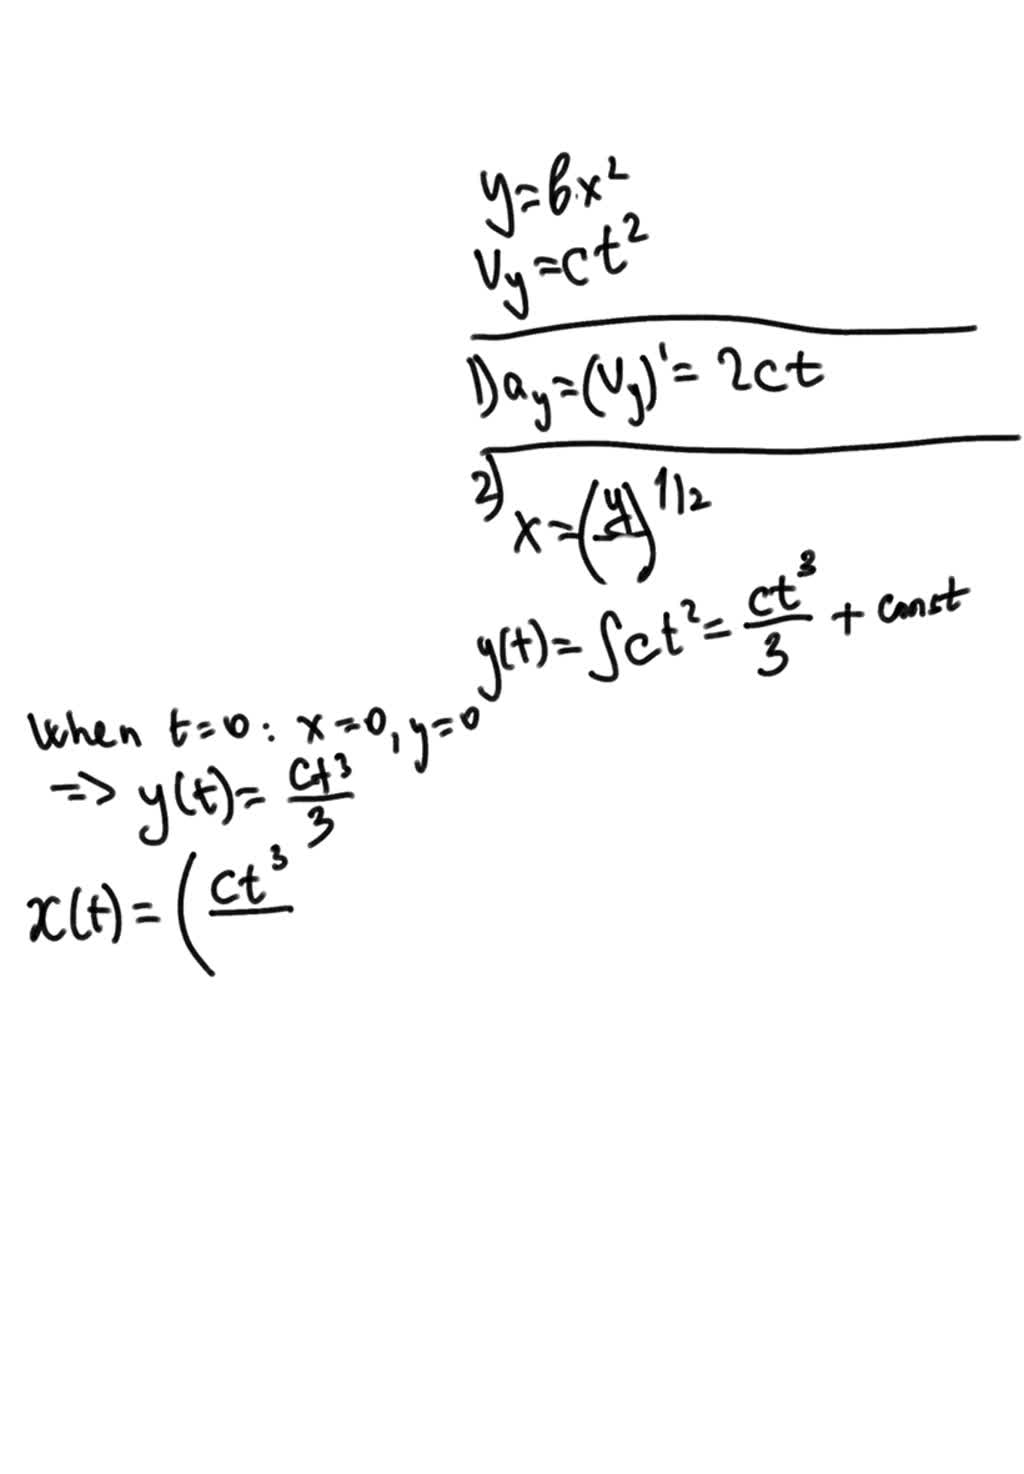 y=b·x²
Vy=ct²
1) ay=(Vy)'=2ct
2)
x=(y/)^1/2
y(t)=∫ct²=ct³/3+const
When t=0: x=0, y=0
=> y(t)=ct³/3
x(t)=(ct³/